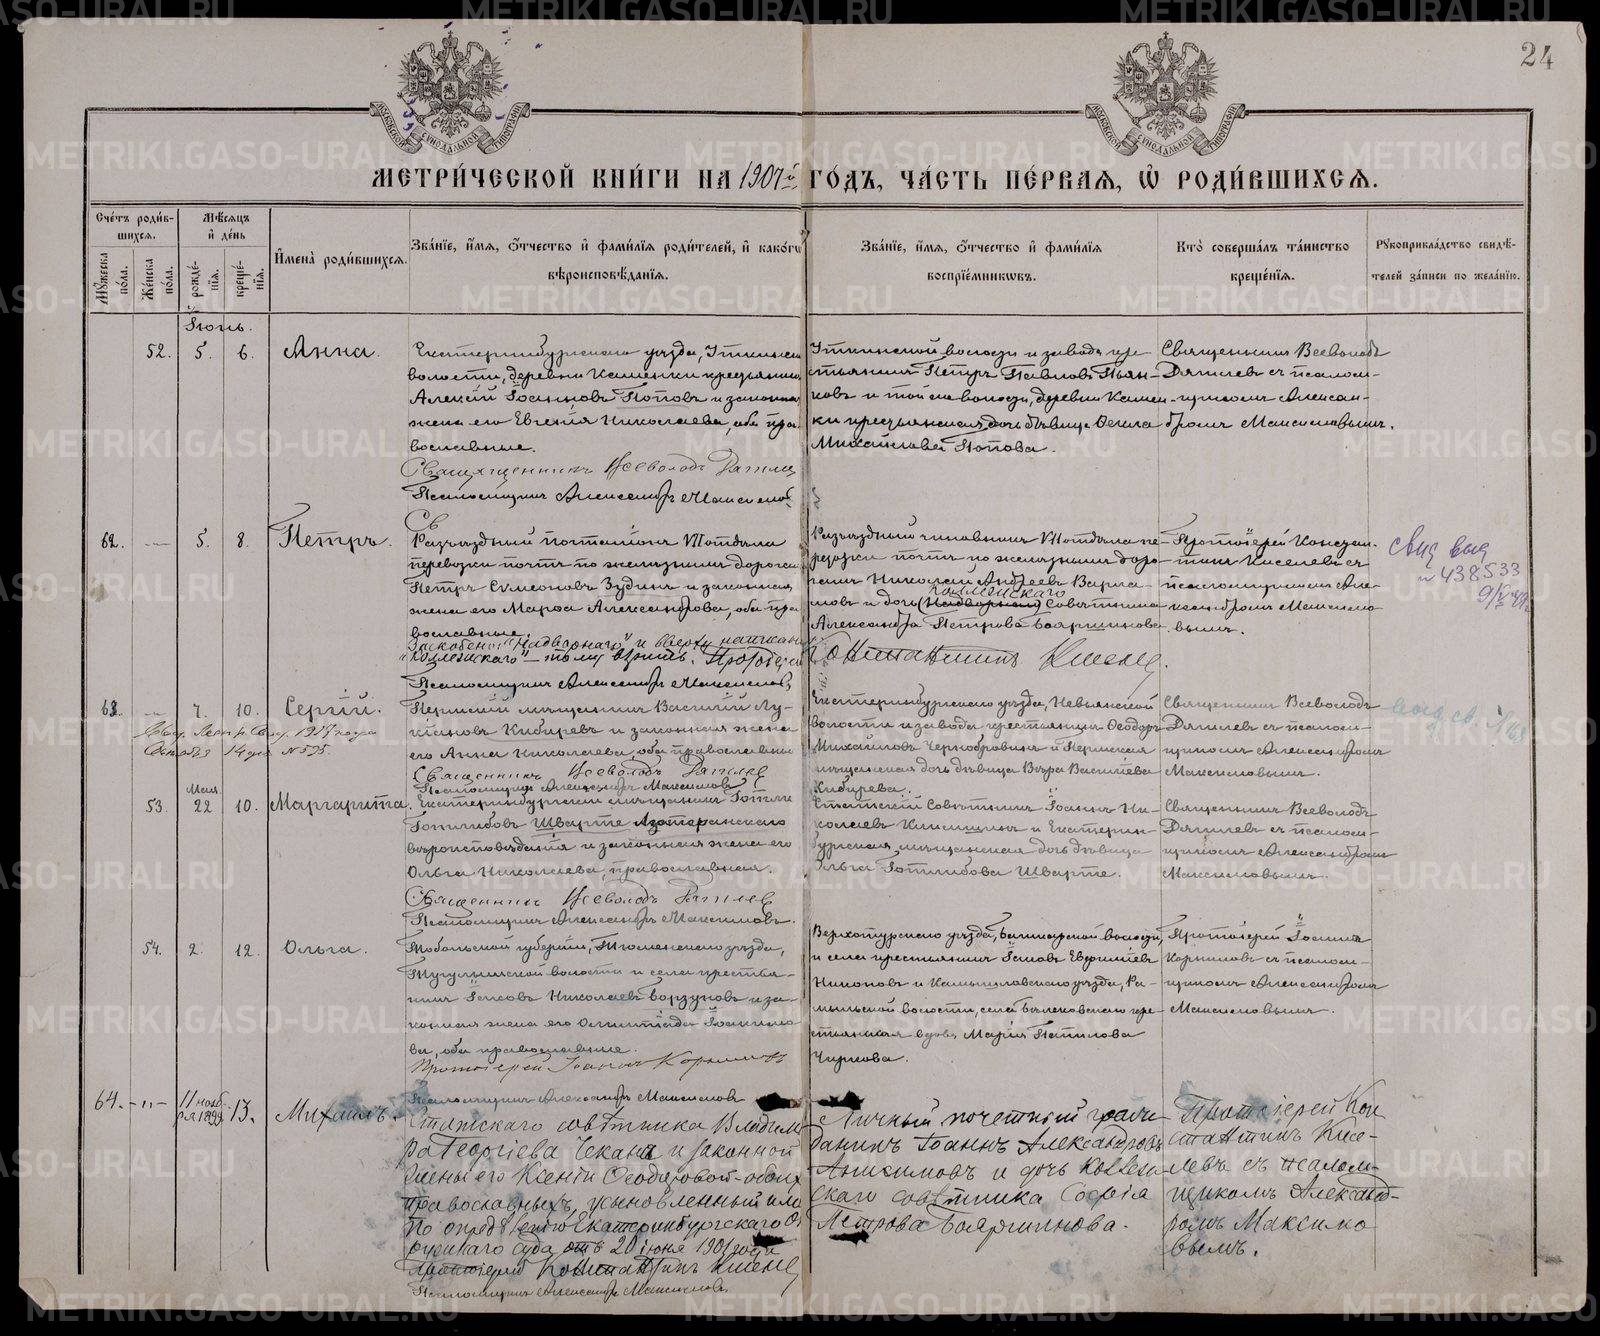 24
МОСКОВСКОЙ СѴНОДАЛЬНОЙ ТИПОГРАФІИ
МОСКОВСКОЙ СѴНОДАЛЬНОЙ ТИПОГРАФІИ
МЕТРИ́ЧЕСКОЙ КНИ́ГИ НА 1907й ГО́ДЪ, ЧА́СТЬ ПЕ́РВАЯ, Ѡ РОДИ́ВШИХСЯ.
Сче́тъ роди́в-
шихся.
Мѣ́сяцъ
и҆ де́нь
Мꙋ́жеска по́ла.
Же́нска по́ла.
рожде́-
нїя.
креще́-
нїя.
И҆мена̀ роди́вшихся.
Зва́нїе, и҆́мя, ѻ҆́тчество и҆ фами́лїя роди́телей, и҆ како́гѡ
вѣроисповѣ́данїя.
Зва́нїе, и҆́мя, ѻ҆́тчество и҆ фами́лїя
воспрїе́мникѡвъ.
Кто̀ соверша́лъ та́инство
креще́нїя.
Рꙋкоприкла́дство свидѣ́-
телей за́писи по жела́нїю.
Іюнь.
52. 5. 6. Анна.
Екатеринбургскаго уѣзда, Уткинской
волости, деревни Каменки крестьянинъ
Алексій Іоанновъ Поповъ и законная
жена его Евгенія Николаева, оба пра-
вославные.
Священникъ Всеволодъ Дягилев
Псаломщикъ Александръ Максимовъ
Уткинской волости и завода кре-
стьянинъ Петръ Павловъ Пьян-
ковъ и той же волости, деревни Камен-
ки крестьянская дочь дѣвица Ѳекла
Михайлова Попова.
Священникъ Всеволодъ
Дягилевъ съ псалом-
щикомъ Алексан-
дромъ Максимовымъ.
62. — 5. 8. Петръ.
Св
Разъѣздный почталіонъ VII отдѣла
перевозки почтъ по желѣзнымъ дорогамъ
Петръ Сумеоновъ Зудинъ и законная
жена его Марѳа Александрова, оба пра-
вославные.
Заскоблено: "Надворнаго" и вверху написано
"Коллежскаго" — тому вѣрить. Протоіерей
Псаломщикъ Александръ Максимовъ
Разъѣздный чиновникъ VII отдѣла пе-
ревозки почтъ по желѣзнымъ доро-
гамъ Николай Андреевъ Варла-
Коллежскаго
мовъ и дочь (Надворнаго) Совѣтника
Александра Петрова Бояршинова.
Константинъ Киселев.
Протоіерей Констан-
тинъ Киселевъ съ
псаломщикомъ Але-
ксандромъ Максимо-
вымъ.
свид выд
№ 438533
63. — 7. 10. Сергій.
Октября 14 дня № 595.
Пермскій мѣщанинъ Василій Лу-
кіановъ Кибиревъ и законная жена
его Анна Николаева, оба православные
Священникъ Всеволодъ Дягилев
Псаломщикъ Александръ Максимовъ
Екатеринбургскаго уѣзда, Невьянской
волости и завода крестьянинъ Ѳеодоръ
Михайловъ Чернобровинъ и Пермская
мѣщанская дочь дѣвица Вѣра Васильева
Кибирева.
Священникъ Всеволодъ
Дягилевъ съ псалом-
щикомъ Александромъ
Максимовымъ.
выд. св.
Маія
53. 22 10. Маргарита.
Екатеринбургскій мѣщанинъ Готлибъ
Готлибовъ Шварте Лютеранскаго
вѣроисповѣданія и законная жена его
Ольга Николаева, православная.
Священникъ Всеволодъ Дягилев
Псаломщикъ Александръ Максимовъ.
Статскій Совѣтникъ Іоаннъ Ни-
колаевъ Клипщинъ и Екатерин-
бургская мѣщанская дочь дѣвица
Ольга Готлибова Шварте.
Священникъ Всеволодъ
Дягилевъ съ псалом-
щикомъ Александромъ
Максимовымъ.
54. 2. 12. Ольга.
Тобольской губерніи, Тюменскаго уѣзда,
Тугулымской волости и села крестья-
нинъ Іаковъ Николаевъ Борзуновъ и за-
конная жена его Олимпіада Іоанно-
ва, оба православные.
Протоіерей Іоаннъ Корниловъ
Псаломщикъ Александръ Максимовъ
Верхотурскаго уѣзда, Башкарской волости
и села крестьянинъ Іаковъ Евѳиміевъ
Никоновъ и Камышловскаго уѣзда, Ра-
мыльской волости, села крe-
стьянская вдова Марія Патилова
Чиркова.
Протоіерей Іоаннъ
Корниловъ съ псалом-
щикомъ Александромъ
Максимовымъ.
64. —"— 11 нояб-
ря 1899. 13. Михаилъ.
Статскаго совѣтника Владими-
ра Георгіева Чеканъ и законной
жены его Ксеніи Ѳеодоровой-обоихъ
православныхъ, усыновленный ими
по опредѣленію Екатеринбургскаго О-
кружнаго суда отъ 20 іюня 1901 года
Протоіерей Константинъ Киселев
Псаломщикъ Александръ Максимовъ.
Личный почетный граж-
данинъ Іоаннъ Александровъ
Анисимовъ и дочь коллеж-
скаго совѣтника Софія
Петрова Бояршинова.
Протоіерей Кон-
стантинъ Кисе-
левъ съ псалом-
щикомъ Александ-
ромъ Максимо-
вымъ.
METRIKI.GASO-URAL.RU